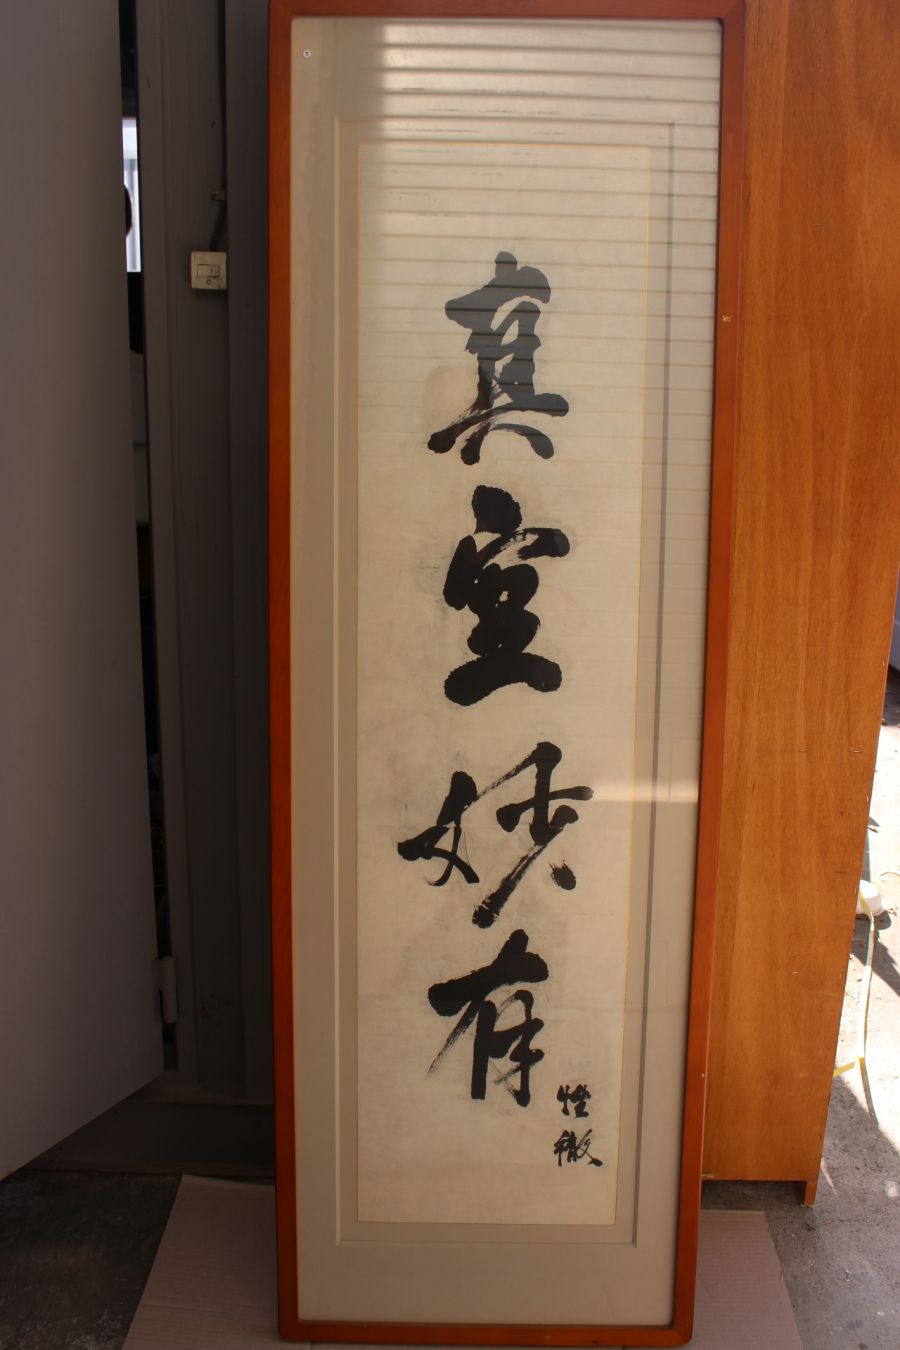 真空妙有
徹